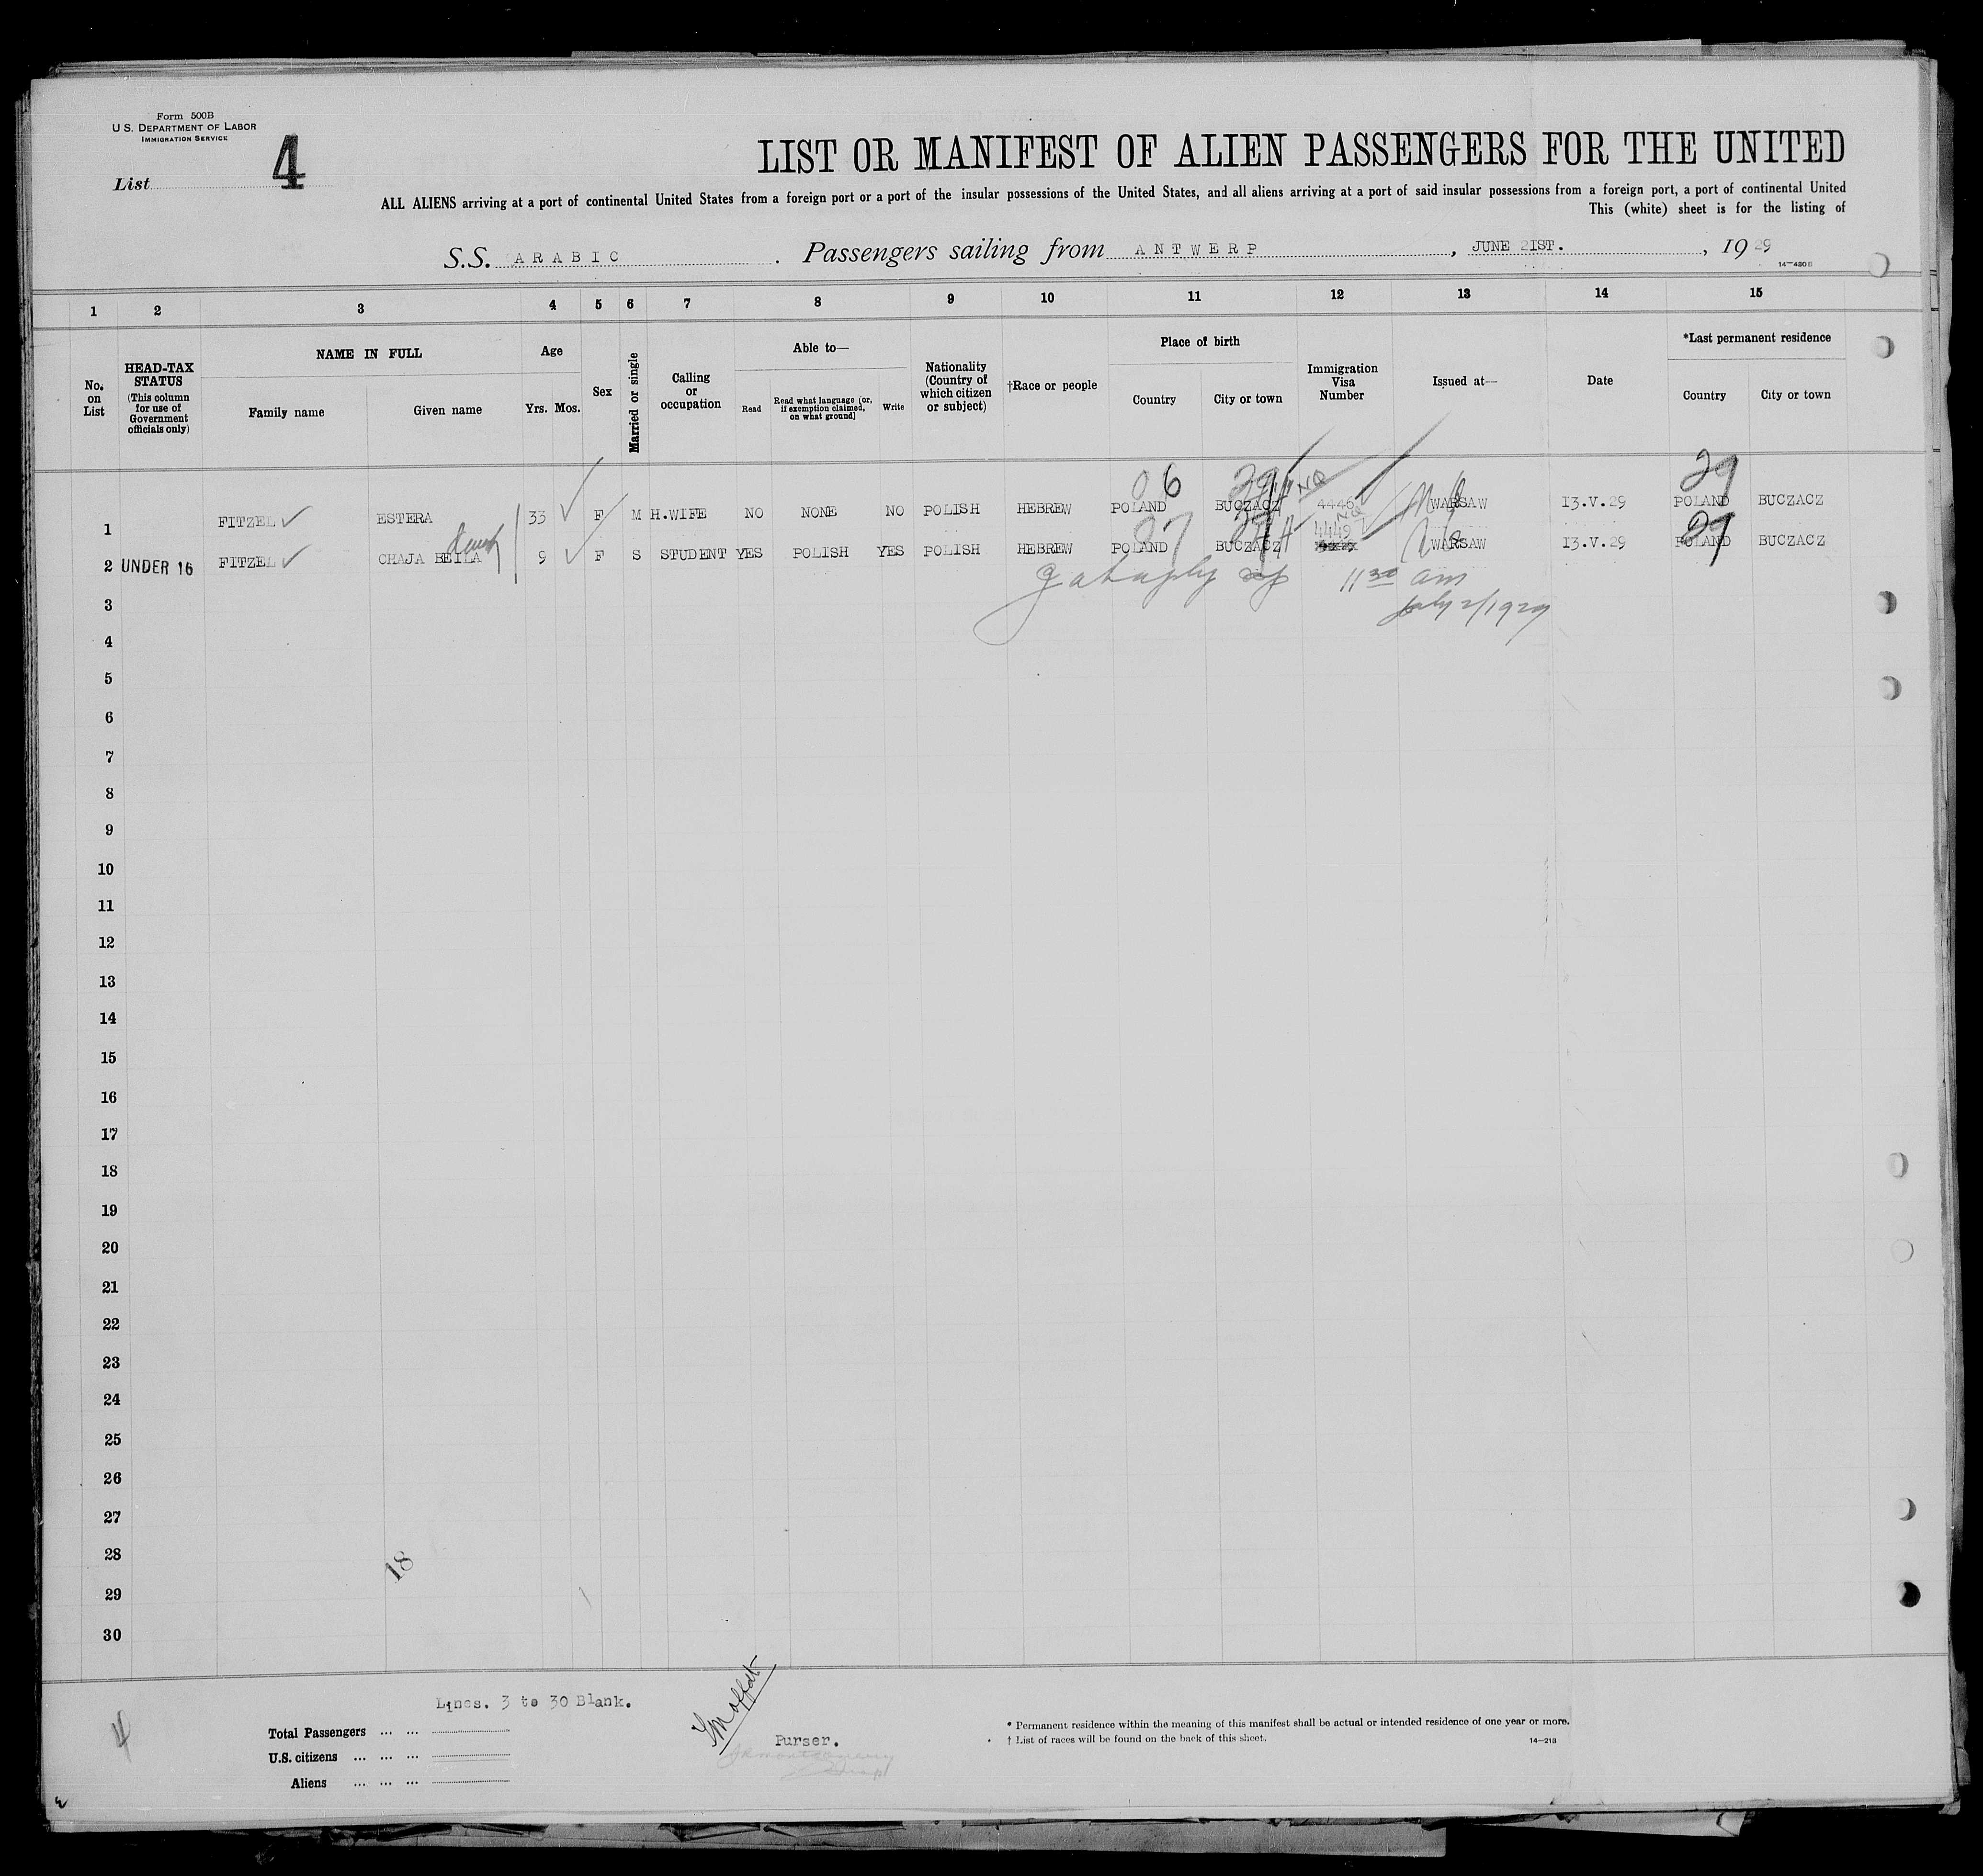 Form 500B
U.S. DEPARTMENT OF LABOR
IMMIGRATION SERVICE
List 4
LIST OR MANIFEST OF ALIEN PASSENGERS FOR THE UNITED
ALL ALIENS arriving at a port of continental United States from a foreign port or a port of the insular possessions of the United States, and all aliens arriving at a port of said insular possessions from a foreign port, a port of continental United
This (white) sheet is for the listing of
S.S. ARABIC . Passengers sailing from ANTWERP , JUNE 21ST. , 1929
14-430 B
1 2 3 4 5 6 7 8 9 10 11 12 13 14 15
No. on List
HEAD-TAX STATUS (This column for use of Government officials only)
NAME IN FULL
Family name Given name
Age
Yrs. Mos.
Sex
Married or single
Calling or occupation
Able to—
Read Read what language [or, if exemption claimed, on what ground] Write
Nationality (Country of which citizen or subject)
†Race or people
Place of birth
Country City or town
Immigration Visa Number
Issued at—
Date
*Last permanent residence
Country City or town
06 29
1 FITZEL ESTERA 33 F M H.WIFE NO NONE NO POLISH HEBREW POLAND BUCZACZ 4446 WARSAW 13.V.29 POLAND BUCZACZ
07
2 UNDER 16 FITZEL CHAJA BEILA 9 F S STUDENT YES POLISH YES POLISH HEBREW POLAND BUCZACZ 4449 WARSAW 13.V.29 POLAND BUCZACZ
11 30 am
July 2/1929
3
4
5
6
7
8
9
10
11
12
13
14
15
16
17
18
19
20
21
22
23
24
25
26
27
28
18
29
30
Lines. 3 to 30 Blank.
4
Total Passengers ... ...
U.S. citizens ... ... ...
Aliens ... ... ...
Moffat
Purser.
* Permanent residence within the meaning of this manifest shall be actual or intended residence of one year or more.
† List of races will be found on the back of this sheet.
14-218